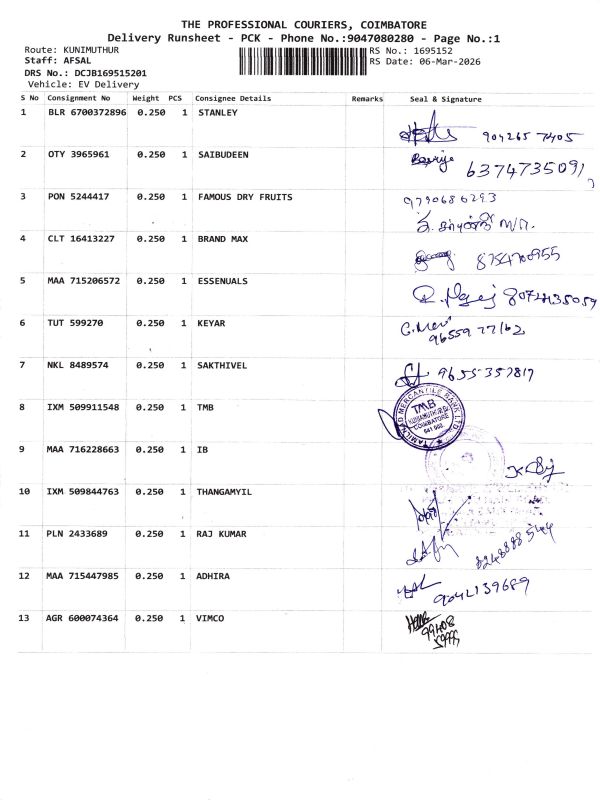 THE PROFESSIONAL COURIERS, COIMBATORE
Delivery Runsheet - PCK - Phone No.:9047080280 - Page No.:1
Route: KUNIMUTHUR
RS No.: 1695152
Staff: AFSAL
RS Date: 06-Mar-2026
DRS No.: DCJB169515201
Vehicle: EV Delivery
S No Consignment No Weight PCS Consignee Details Remarks Seal & Signature
1 BLR 6700372896 0.250 1 STANLEY
2 OTY 3965961 0.250 1 SAIBUDEEN
6374735091
3 PON 5244417 0.250 1 FAMOUS DRY FRUITS
9790686293
4 CLT 16413227 0.250 1 BRAND MAX
5 MAA 715206572 0.250 1 ESSENUALS
6 TUT 599270 0.250 1 KEYAR
96559 77162
7 NKL 8489574 0.250 1 SAKTHIVEL
9655357817
8 IXM 509911548 0.250 1 TMB
TAMILNAD MERCANTILE BANK LTD.
TMB
COIMBATORE
641 008
9 MAA 716228663 0.250 1 IB
10 IXM 509844763 0.250 1 THANGAMYIL
11 PLN 2433689 0.250 1 RAJ KUMAR
8248888544
12 MAA 715447985 0.250 1 ADHIRA
9042139689
13 AGR 600074364 0.250 1 VIMCO
99408